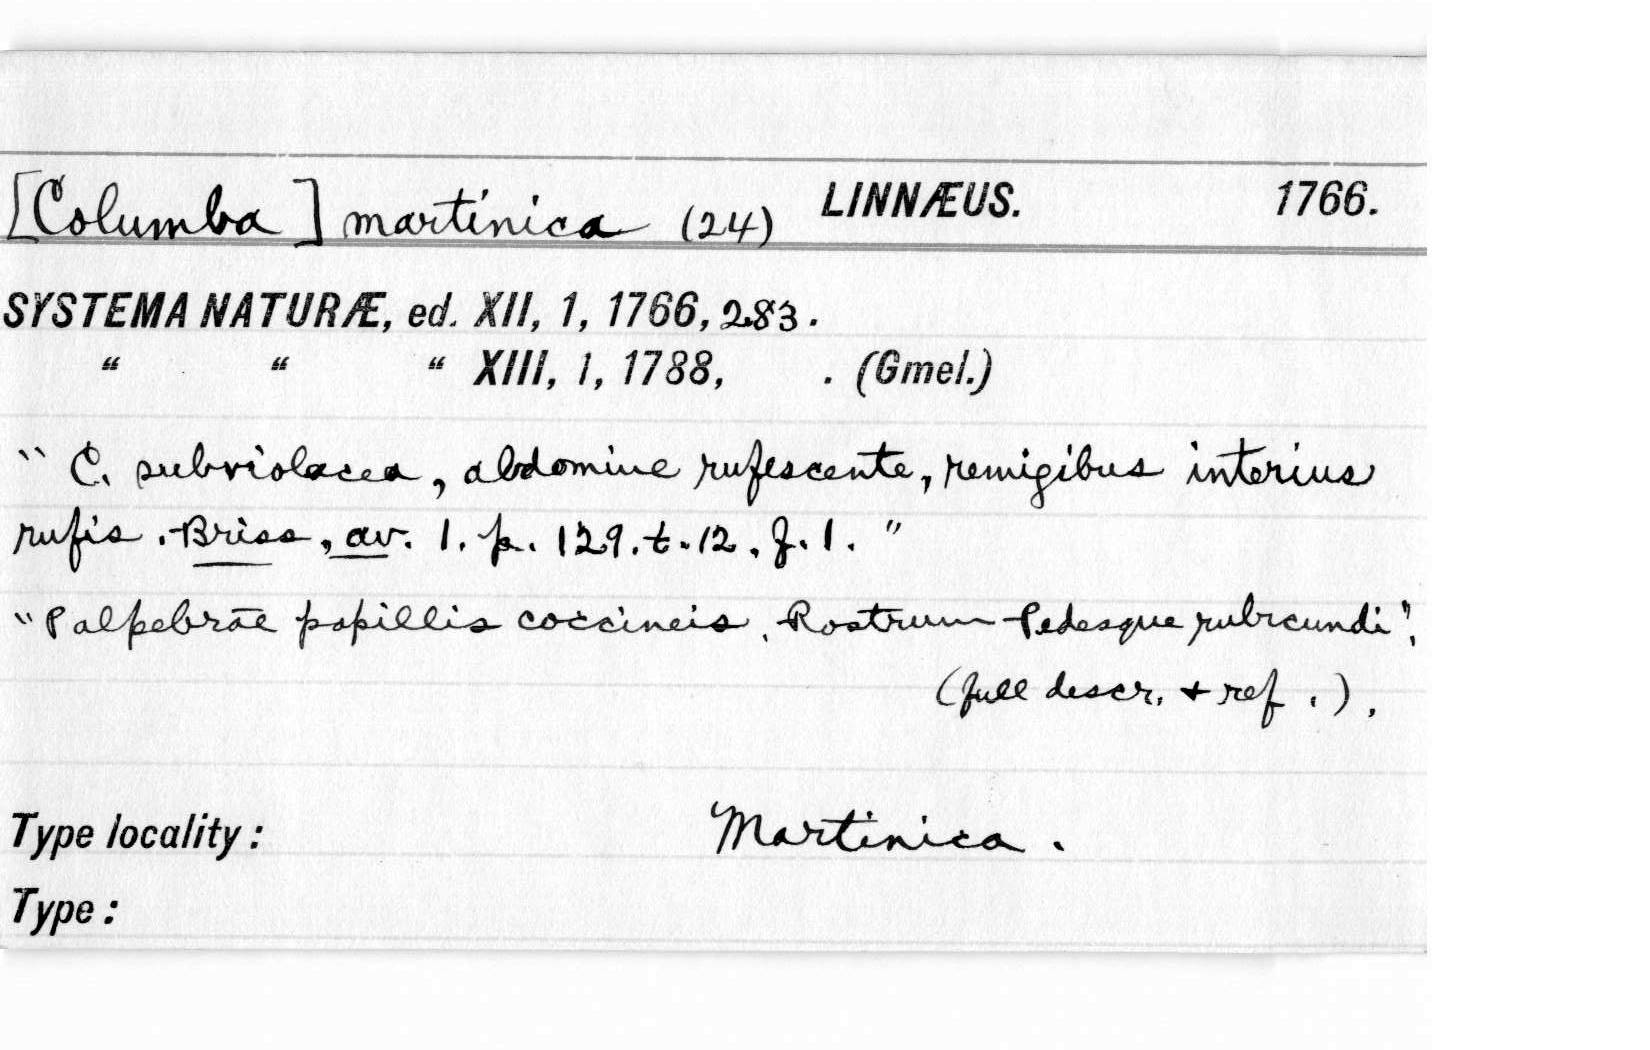 [Columba] martinica (24) LINNÆUS. 1766.
SYSTEMA NATURÆ, ed. XII, 1, 1766, 283.
" " " XIII, 1, 1788, . (Gmel.)
"C. subviolacea, abdomine rufescente, remigibus interius
rufis. Briss, av. 1. p. 129. t. 12. f. 1."
"Palpebrae papillis coccineis. Rostrum Pedesque rubicundi".
(full descr. + ref.).
Type locality: Martinica.
Type: